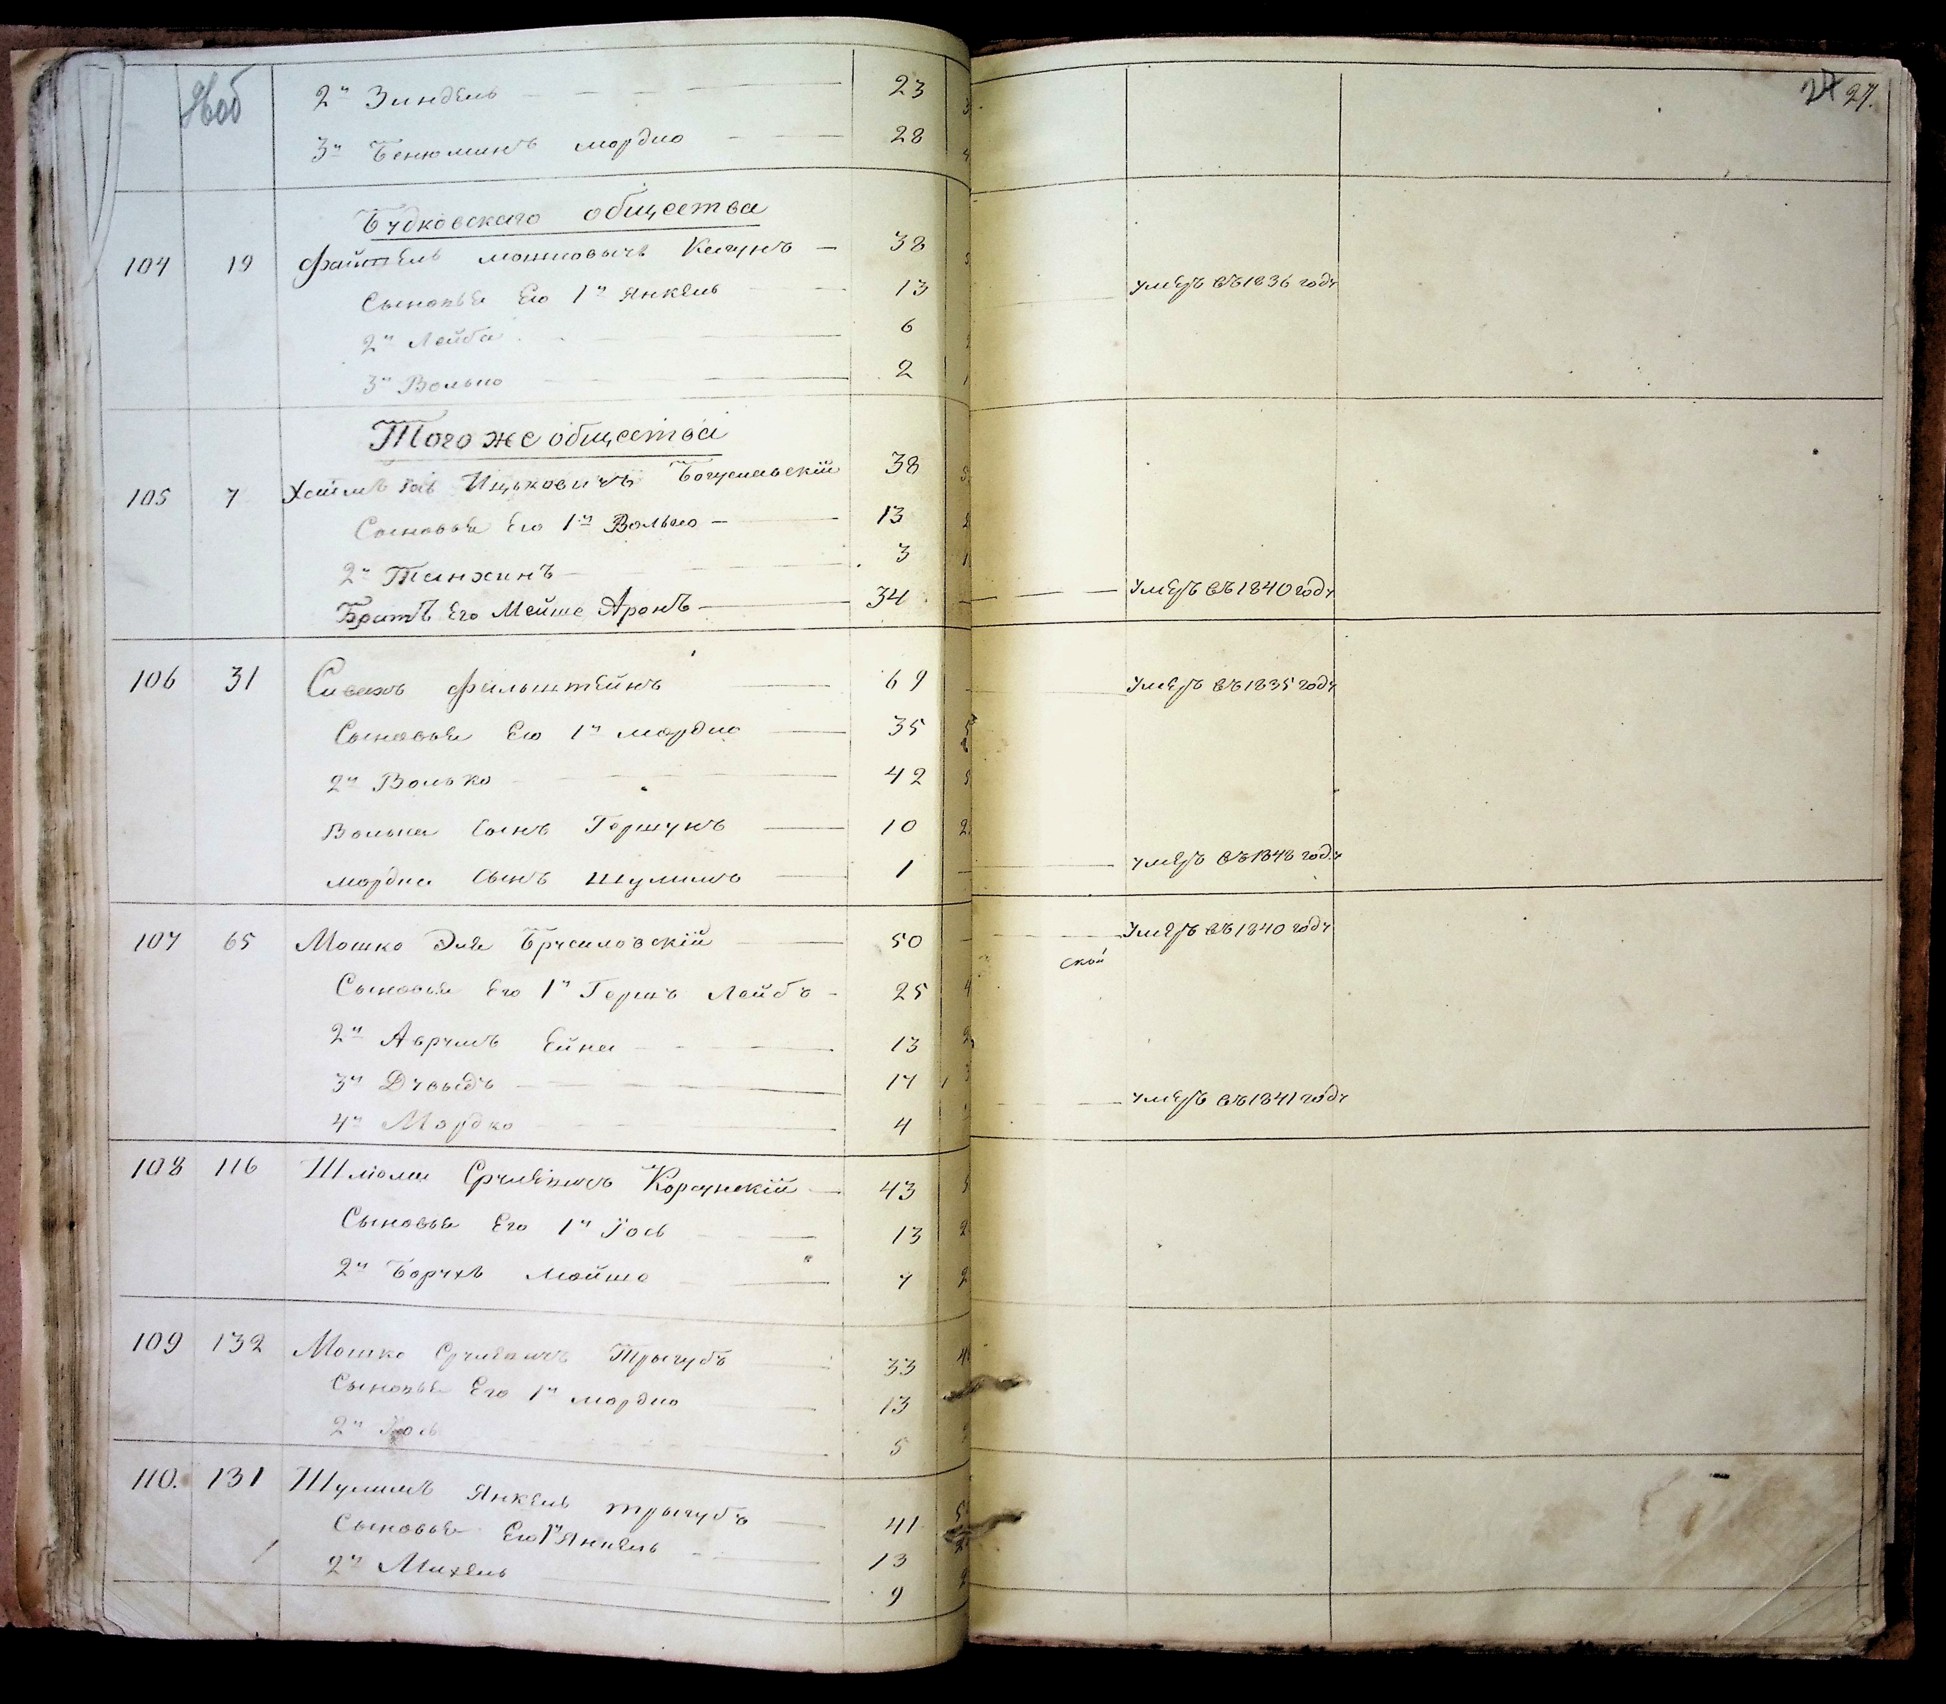 2й Зиндель 23
3й Бенюминъ Мордко 28
27 27.
Будковскаго общества
104 19 Файтель Мошковичъ Кагунъ 38
Сыновья Его 1й Янкель 13 Умеръ въ 1836 году
2й Лейба 6
3й Волько 2
Того же общества
105 7 Хаимъ Ицьковичъ Богуславскій 38
Сыновья Его 1й Волько 13
2й Танхинъ 3
Братъ Его Мейше Аронъ 34 Умеръ въ 1840 году
106 31 Фальштейнъ 69 Умеръ въ 1835 году
Сыновья Его 1й Мордко 35
2й Волько 42
Волька Сынъ Гершунъ 10
Мордка Сынъ Шулимъ 1 Умеръ въ 1848 году
107 65 Мошко Эля Брусиловскій 50 Умеръ въ 1840 году
ской
Сыновья Его 1й Гершъ Лейбъ 25
2й Аврумъ Ейна 13
3й Дувыдъ 17
4й Мордко 4 Умеръ въ 1841 году
108 116 Шліома Срулевичъ Корсунскій 43
Сыновья Его 1й Іось 13
2й Борухъ Мойше 7
109 132 Мошко Срулевичъ Трыгубъ 33
Сыновья Его 1й Мордко 13
2й 5
110. 131 Шулимъ Янкель Трыгубъ 41
Сыновья Его 1й Янкель 13
2й Михель 9